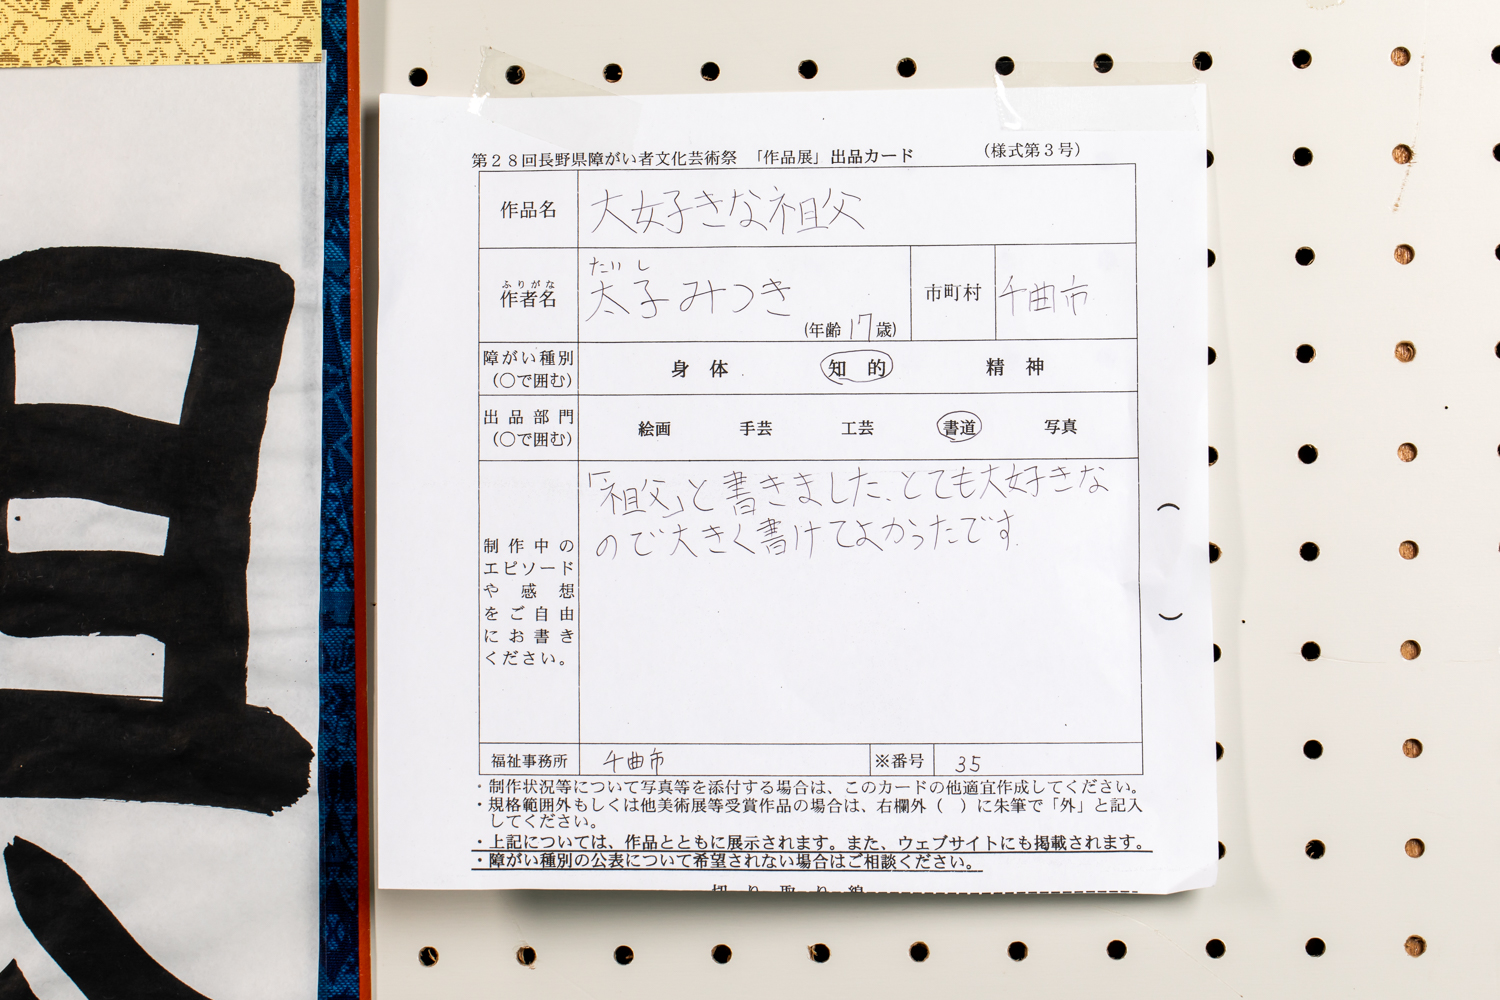 第２８回長野県障がい者文化芸術祭 「作品展」出品カード （様式第３号）
作品名 大好きな祖父
ふりがな たいし
作者名 太子みつき (年齢 17 歳) 市町村 千曲市
障がい種別 （○で囲む） 身 体 知 的 精 神
出品部門 （○で囲む） 絵画 手芸 工芸 書道 写真
「祖父」と書きました、とても大好きな
ので大きく書けてよかったです
制作中の
エピソード
や感想
をご自由
にお書き
ください。
福祉事務所 千曲市 ※番号 35
・制作状況等について写真等を添付する場合は、このカードの他適宜作成してください。
・規格範囲外もしくは他美術展等受賞作品の場合は、右欄外（　）に朱筆で「外」と記入
してください。
・上記については、作品とともに展示されます。また、ウェブサイトにも掲載されます。
・障がい種別の公表について希望されない場合はご相談ください。
切 り 取 り 線